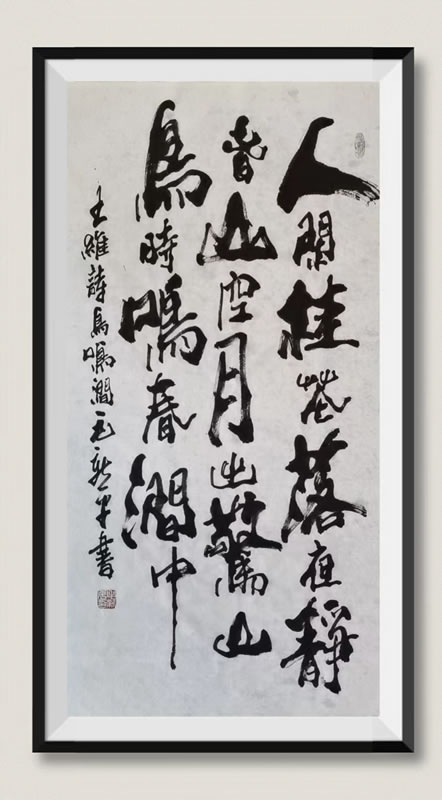 人閒桂花落夜靜
春山空月出驚山
鳥時鳴春澗中
王維詩鳥鳴澗書